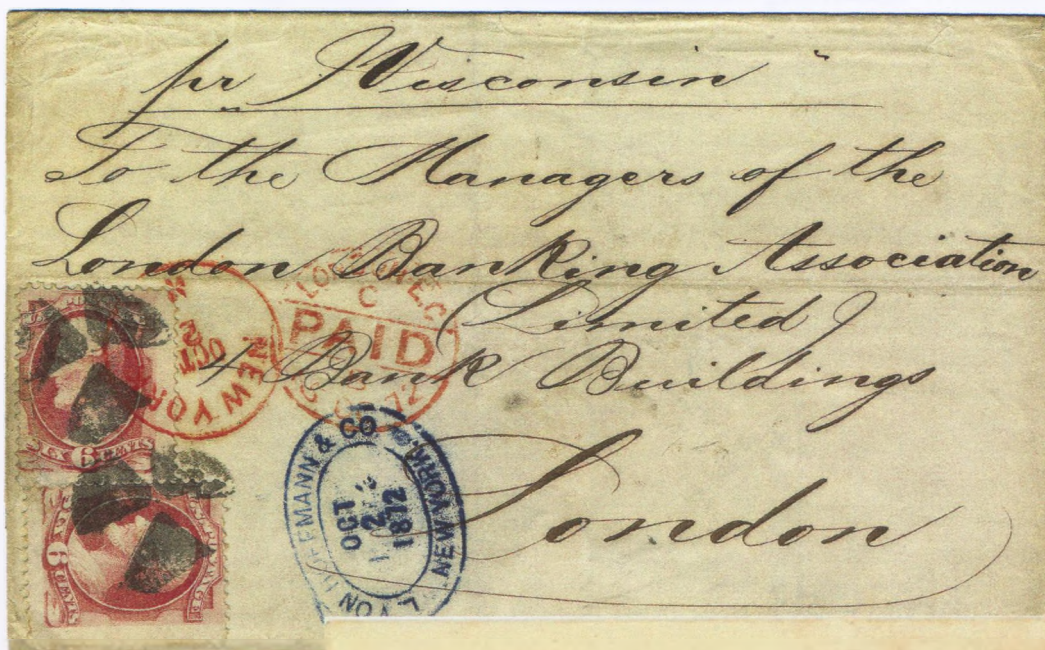 pr "Wisconsin"
To the Managers of the
London Banking Association
(Limited)
4 Bank Buildings
London
NEW YORK
OCT
2
PAID
C
L. VON & CO
NEW YORK.
OCT
2
1872
SIX 6 CENTS
6 CENTS